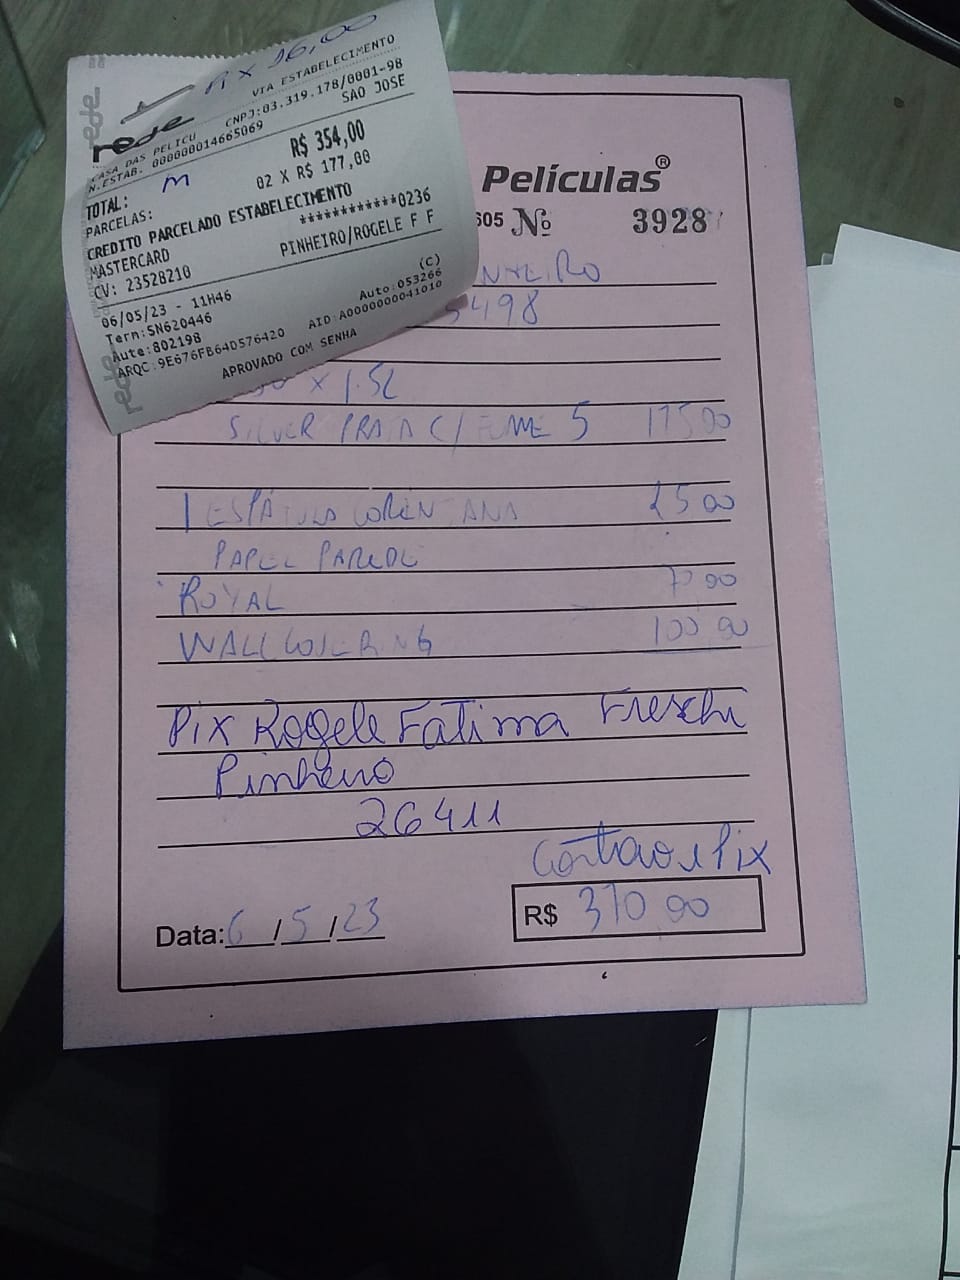 Pix 16,00
rede
VIA ESTABELECIMENTO
CASA DAS PELICU CNPJ:03.319.178/0001-98
N.ESTAB. 000000014665069 SAO JOSE
M
TOTAL: R$ 354,00
PARCELAS: 02 X R$ 177,00
CREDITO PARCELADO ESTABELECIMENTO
MASTERCARD ************0236
CV: 23528210 PINHEIRO/ROGELE F F
06/05/23 - 11H46 (C)
Term:SN620446 Auto:053266
Aute:802198 AID:A0000000041010
ARQC:9E676FB64D576420
APROVADO COM SENHA
rede
rede
Películas®
605 Nº 3928
NHEIRO
5498
X 1.52
SILVER PRATA C/ FUME 5 175 00
1 ESPÁTULA CORENTANA 25 00
PAPEL PAREDE
ROYAL 70 00
WALLCOVERING 100 00
Pix Rogele Fatima Freschi
Pinheiro
26411
Cartão e Pix
Data: 6/5/23 R$ 370 00